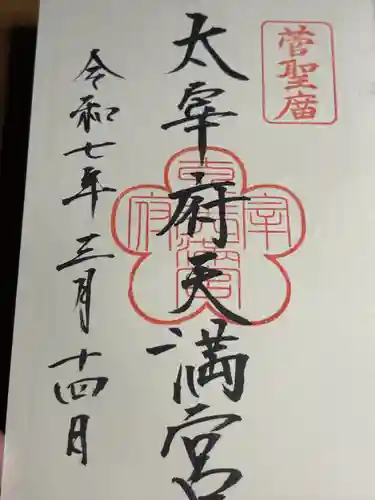 菅聖廟
太宰府天満宮
令和七年三月十四日